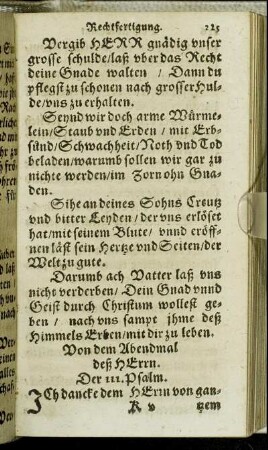 Rechtfertigung. 225
Vergib HERR gnädig vnser
grosse schulde/laß vber das Recht
deine Gnade walten / Dann du
pflegst zu schonen nach grosser Hul-
de/vns zu erhalten.
Seynd wir doch arme Würme-
lein/Staub vnd Erden / mit Erb-
sünd/Schwachheit/Noth vnd Tod
beladen/warumb sollen wir gar zu
nichte werden/im Zorn ohn Gna-
den.
Sihe an deines Sohns Creutz
vnd bitter Leyden/der vns erlöset
hat/mit seinem Blute/ vnnd eröff-
nen läst sein Hertze vnd Seiten/der
Welt zu gute.
Darumb ach Vatter laß vns
nicht verderben/ Dein Gnad vnnd
Geist durch Christum wollest ge-
ben / nach vns sampt jhme deß
Himmels Erben/mit dir zu leben.
Von dem Abendmal
deß HErrn.
Der 111. Psalm.
ICh dancke dem HErrn von gan-
K v tzem